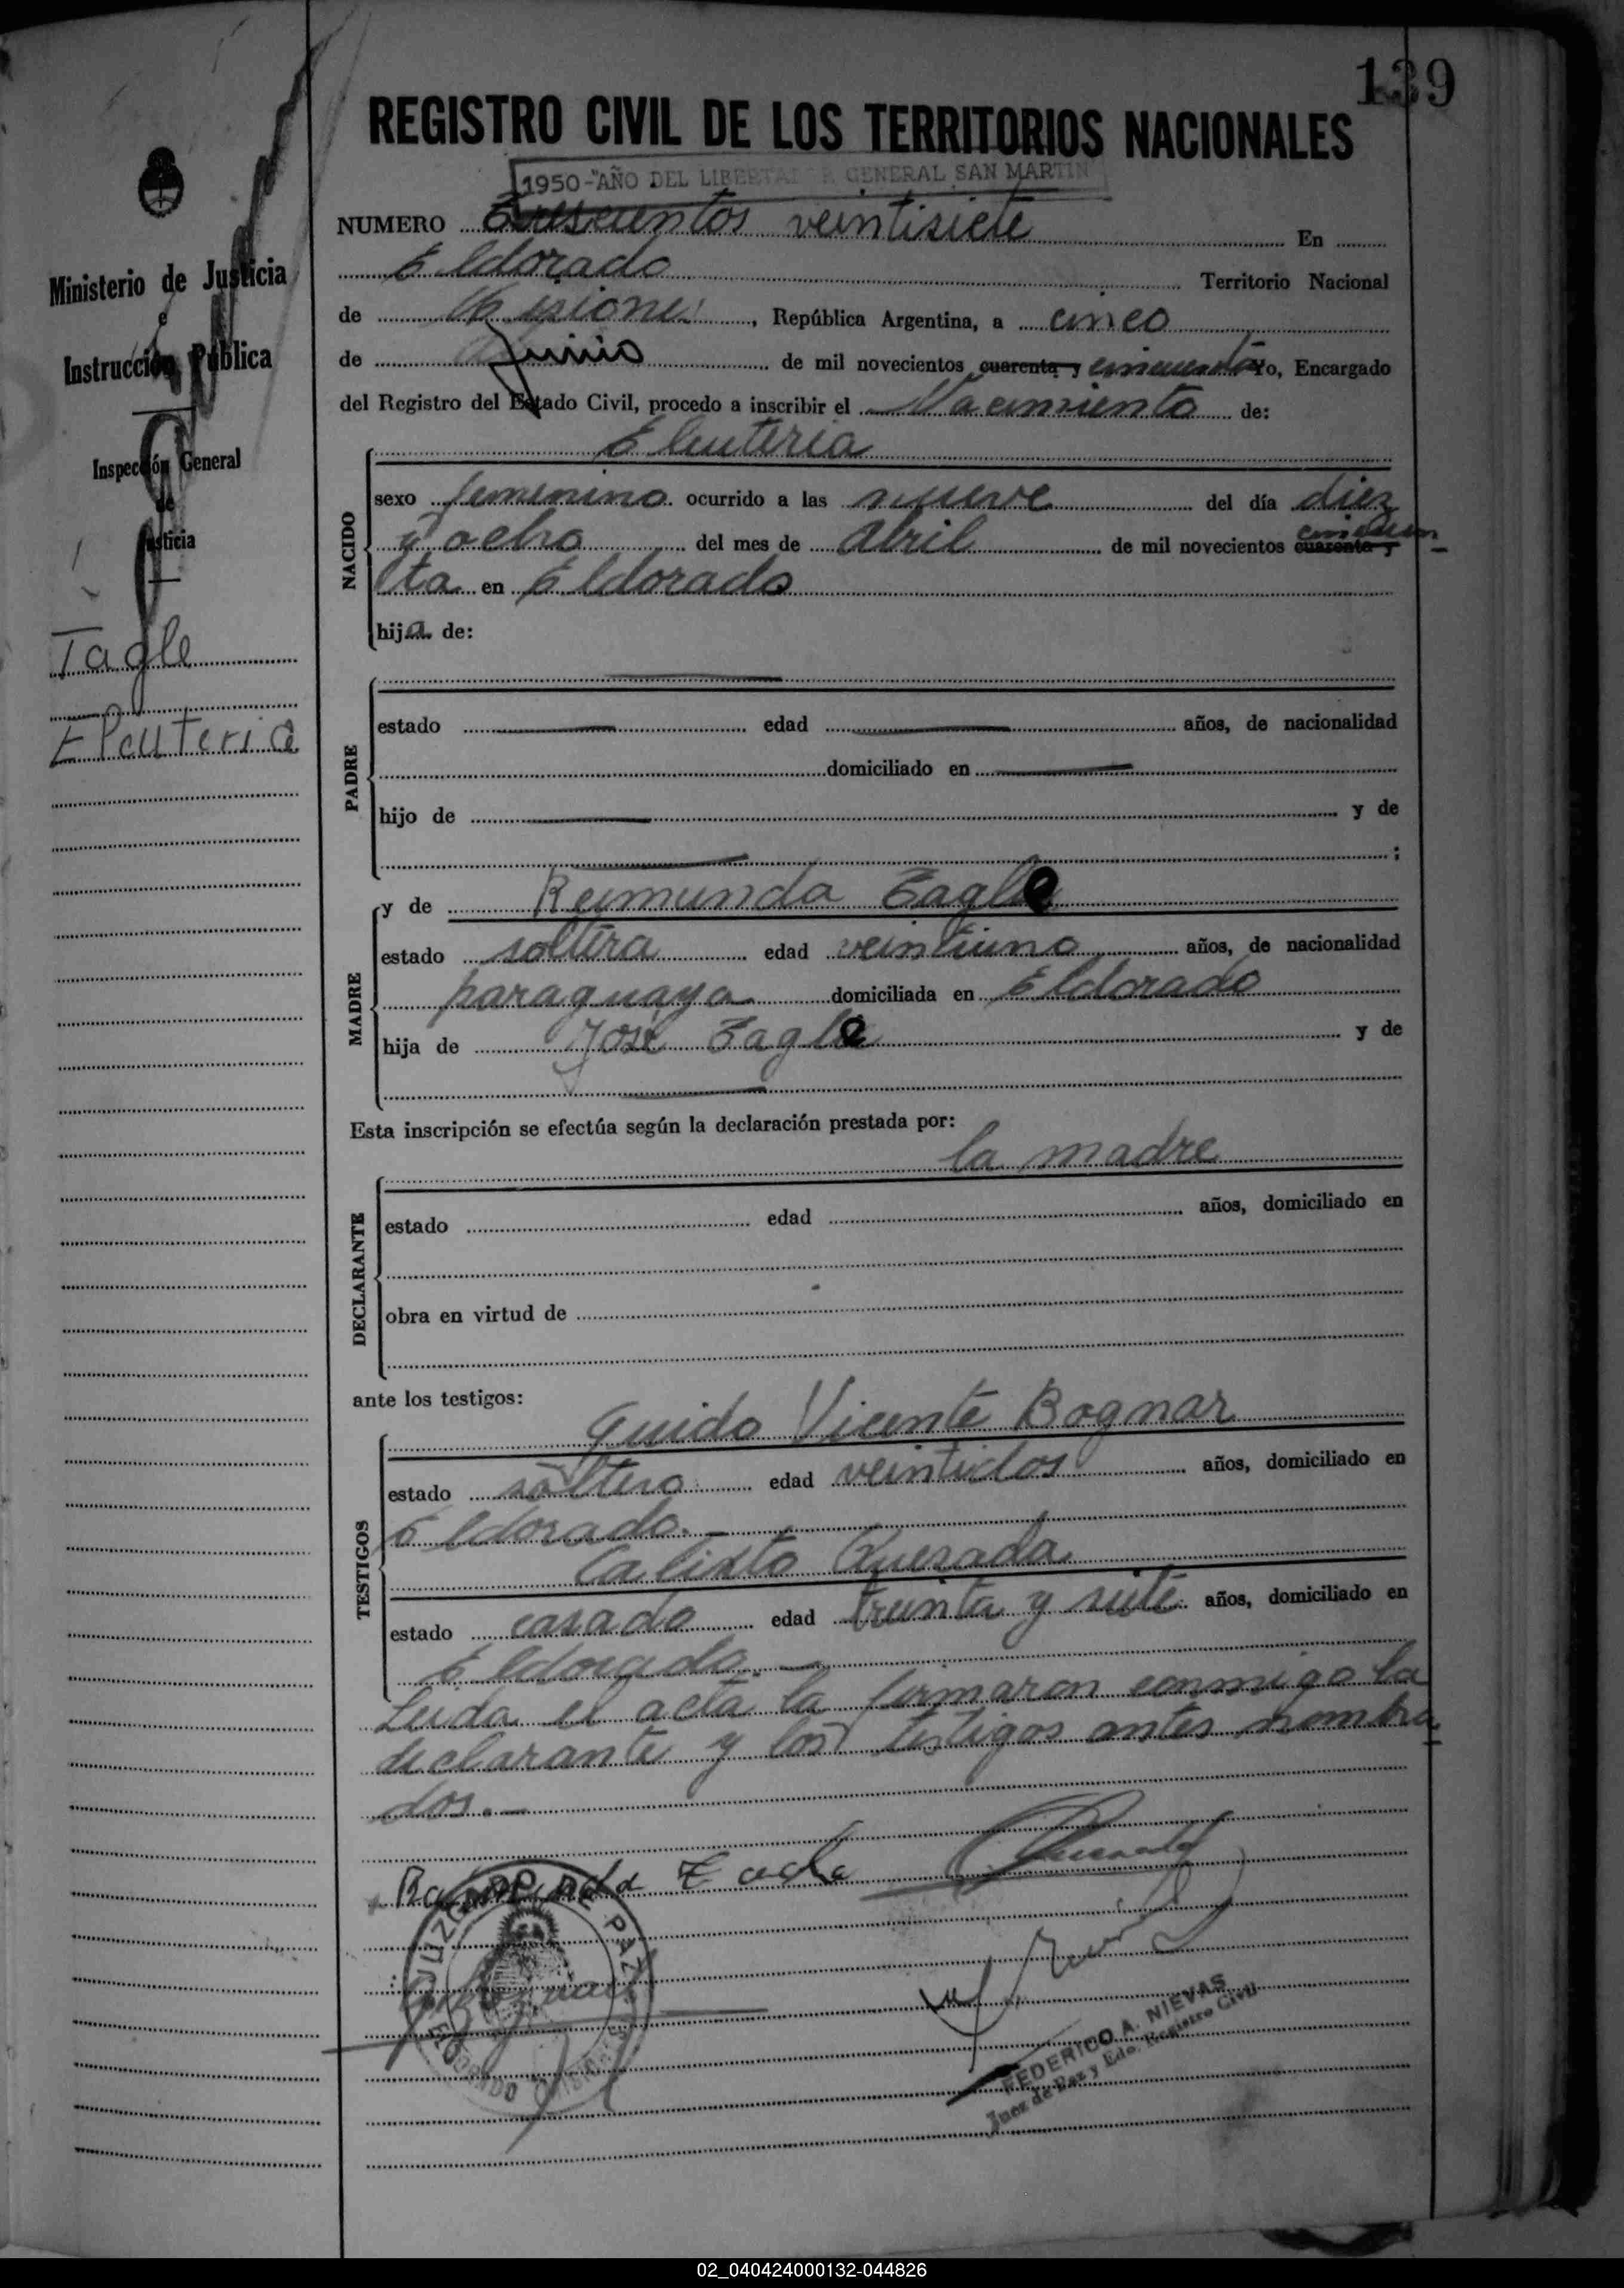 139
REGISTRO CIVIL DE LOS TERRITORIOS NACIONALES
1950-"AÑO DEL LIBERTADOR GENERAL SAN MARTIN
NUMERO Trescientos veintisiete En
Eldorado Territorio Nacional
de Misiones, República Argentina, a cinco
de Junio de mil novecientos cuarenta y cincuenta Yo, Encargado
del Registro del Estado Civil, procedo a inscribir el Nacimiento de:
Eleuteria
NACIDO
sexo femenino ocurrido a las nueve del día diez
y ocho del mes de Abril de mil novecientos cuarenta y cincuen
ta en Eldorado
hija de:
PADRE
estado edad años, de nacionalidad
domiciliado en
hijo de y de
;
MADRE
y de Reimunda Tagle
estado soltera edad veintiuno años, de nacionalidad
paraguaya domiciliada en Eldorado
hija de José Tagle y de
Esta inscripción se efectúa según la declaración prestada por:
la madre
DECLARANTE
estado edad años, domiciliado en
obra en virtud de
ante los testigos:
TESTIGOS
Guido Vicente Bognar
estado soltero edad veintidos años, domiciliado en
Eldorado.-
Calixto Quesada
estado casado edad treinta y siete años, domiciliado en
Eldorado.-
Leida el acta la firmaron conmigo la
declarante y los testigos antes nombra
dos.-
JUZGADO DE PAZ
ELDORADO
FEDERICO A. NIEVAS
Juez de Paz y Edo. Registro Civil
Ministerio de Justicia
e
Instrucción Pública
Inspección General
de
Justicia
Tagle
Eleuteria
02_040424000132-044826